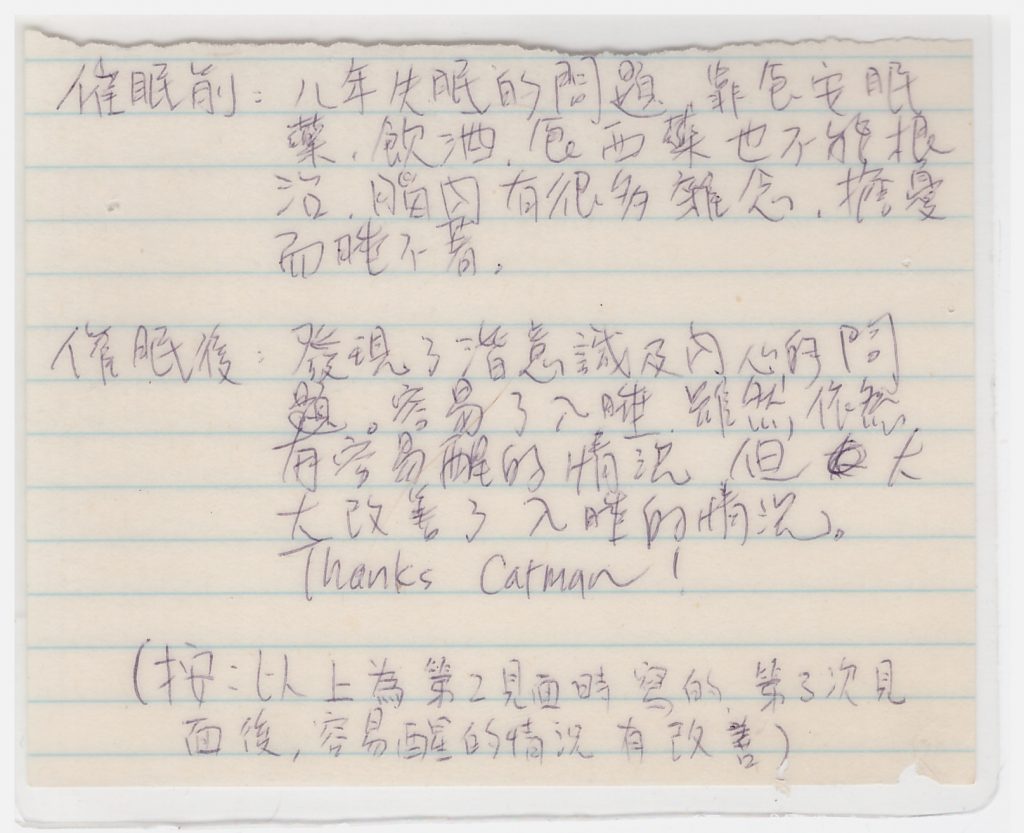 催眠前：八年失眠的問題，靠食安眠
藥，飲酒，食西藥也不能根
治，腦內有很多雜念，擔憂
而睡不着。
催眠後：發現了潛意識及內心的問
題。容易了入睡，雖然，依然
有容易醒的情況，但大
大改善了入睡的情況。
Thanks Carman!
(按：以上為第2見面時寫的，第3次見
面後，容易醒的情況有改善)